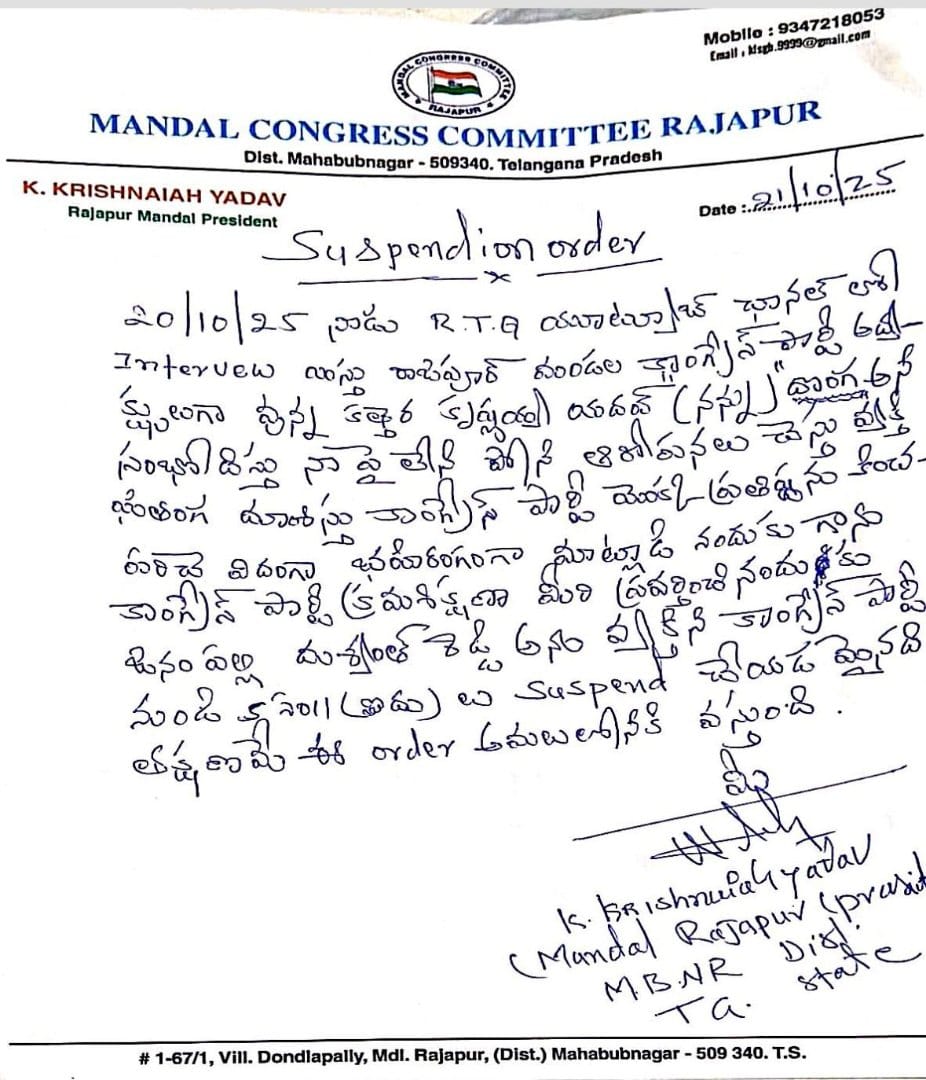 Mobile : 9347218053
Email : klsgh.9999@gmail.com
MANDAL CONGRESS COMMITTEE
RAJAPUR
MANDAL CONGRESS COMMITTEE RAJAPUR
Dist. Mahabubnagar - 509340. Telangana Pradesh
K. KRISHNAIAH YADAV
Rajapur Mandal President
Date : 21/10/25
Suspendion order
20/10/25 నాడు R.T.G యూట్యూబ్ ఛానల్ లో
Intervew ఇస్తు రాజాపూర్ మండల కాంగ్రేస్ పార్టీ అధ్య-
క్షులుగా వున్న కత్తార కృష్ణయ్య యాదవ్ (నన్ను) "దొంగ" అనే
సంబోదిస్తు నా పై లేని పోని ఆరోపనలు చేస్తు వ్యక్తి
గతంగ దూశిస్తు కాంగ్రేస్ పార్టీ యొక్క ప్రతిష్ఠను కించ-
పరిచె విదంగా బహిరంగంగా మాట్లాడి నందుకు గాను
కాంగ్రేస్ పార్టీ క్రమశిక్షణా మీరి ప్రవర్తించి నందుకు
దుశ్యంత్ రెడ్డి అనం వ్యక్తిని కాంగ్రేస్ పార్టీ
నుండి (ఆరు) లు suspend చేయడ మైనది
తక్షణమే ఈ order అమలులోనికి వస్తుంది.
K. KRishnaiah yadav
(Mandal Rajapur (prasid
M.B.NR Dist.
T G. state
# 1-67/1, Vill. Dondlapally, Mdl. Rajapur, (Dist.) Mahabubnagar - 509 340. T.S.